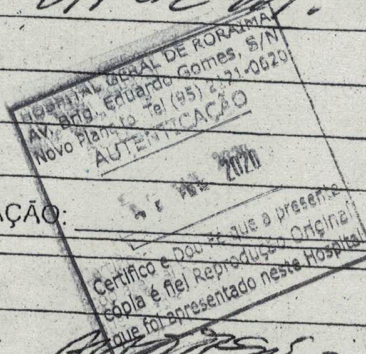 HOSPITAL GERAL DE RORAIMA
AV. Brig. Eduardo Gomes, S/N
Novo Planalto Tel (95) 2121-0620
AUTENTICAÇÃO
2020
AÇÃO:
Certifico e Dou Fé que a presente
cópia é fiel Reprodução Original
que foi apresentado neste Hospital